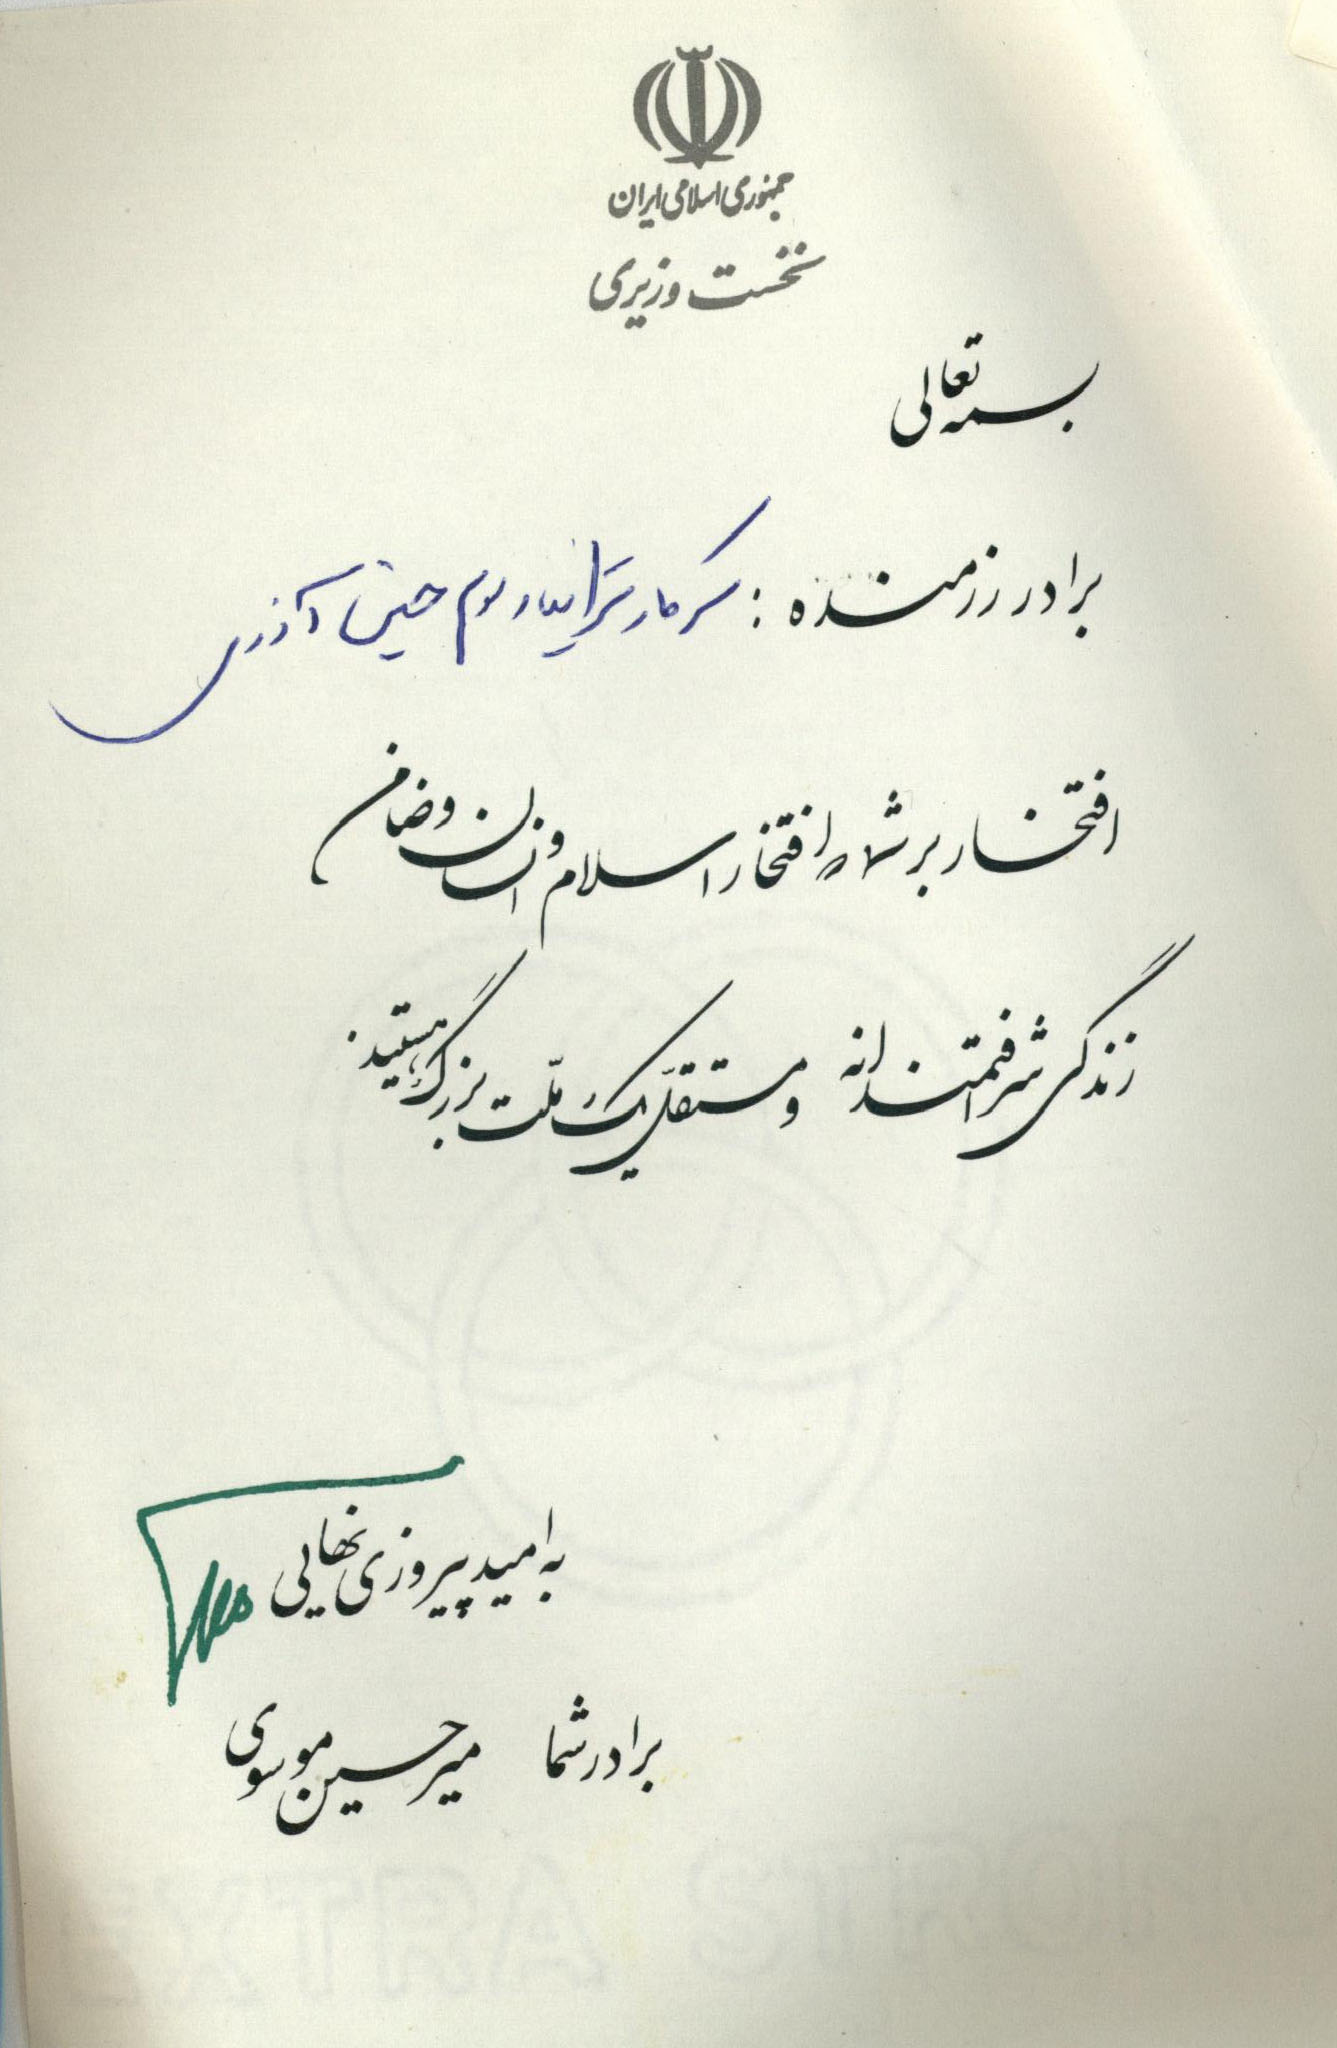 جمهوری اسلامی ایران
نخست وزیری
بسمه تعالی
برادر رزمنده : سرکار سوم حسین آذری
افتخار بر شما که افتخار اسلام و انسان و ضامن
زندگی شرافتمندانه و مستقل یک ملّت بزرگ هستید.
به امید پیروزی نهایی
برادر شما میرحسین موسوی